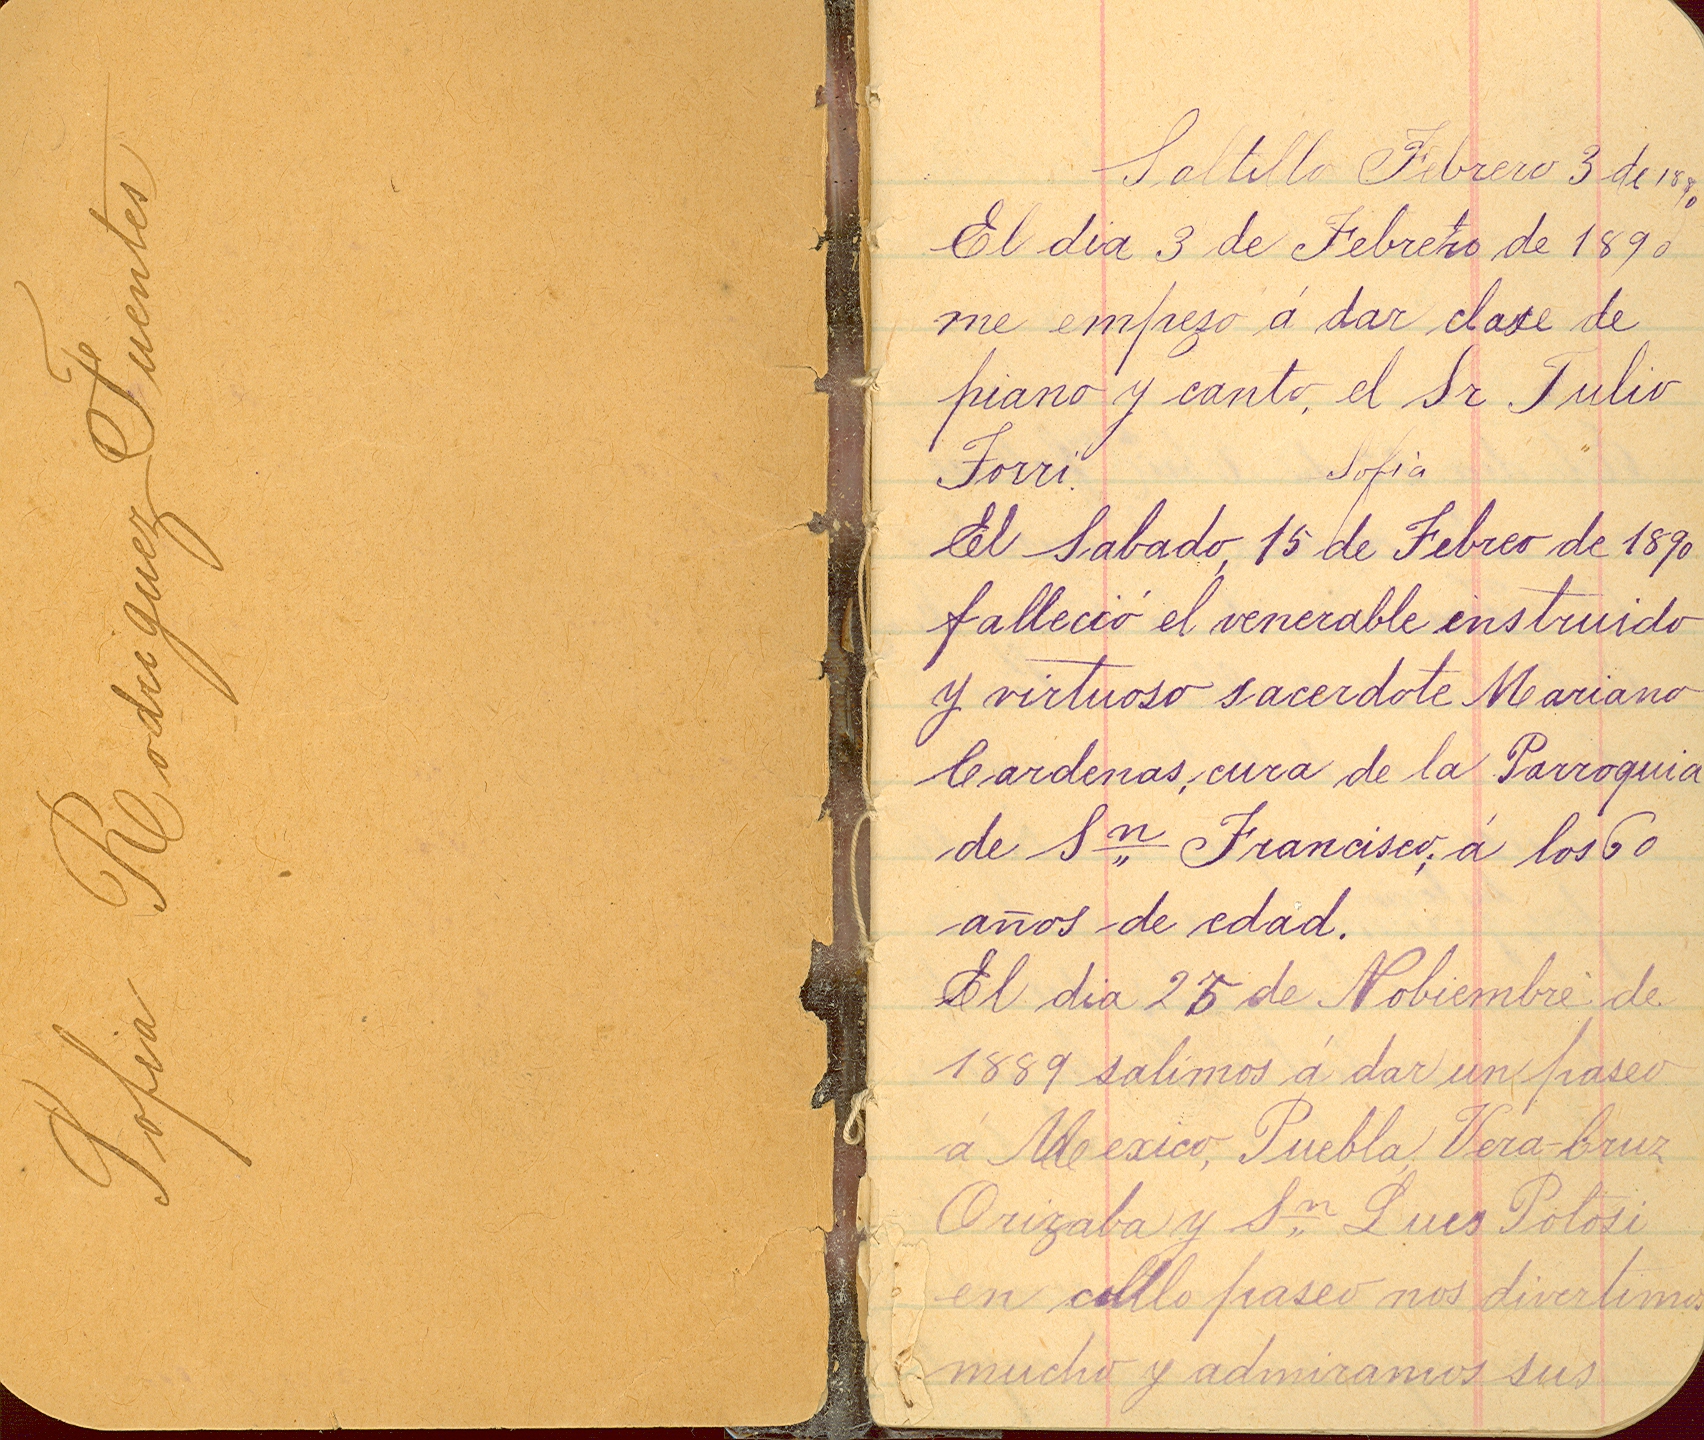 Sofia Rodriguez Fuentes
Saltillo Febrero 3 de 1890
El dia 3 de Febrero de 1890
me empezo á dar clase de
piano y canto, el Sr Tulio
Forri.
Sofia
El Sabado, 15 de Febreo de 1890
falleció el venerable instruido
y virtuoso sacerdote Mariano
Cardenas, cura de la Parroquia
de Sn Francisco; á los 60
años de edad.
El dia 25 de Nobiembre de
1889 salimos á dar un paseo
á Mexico, Puebla, Vera-Cruz
Orizaba y Sn Luis Potosi
en cullo paseo nos divertimos
mucho y admiramos sus